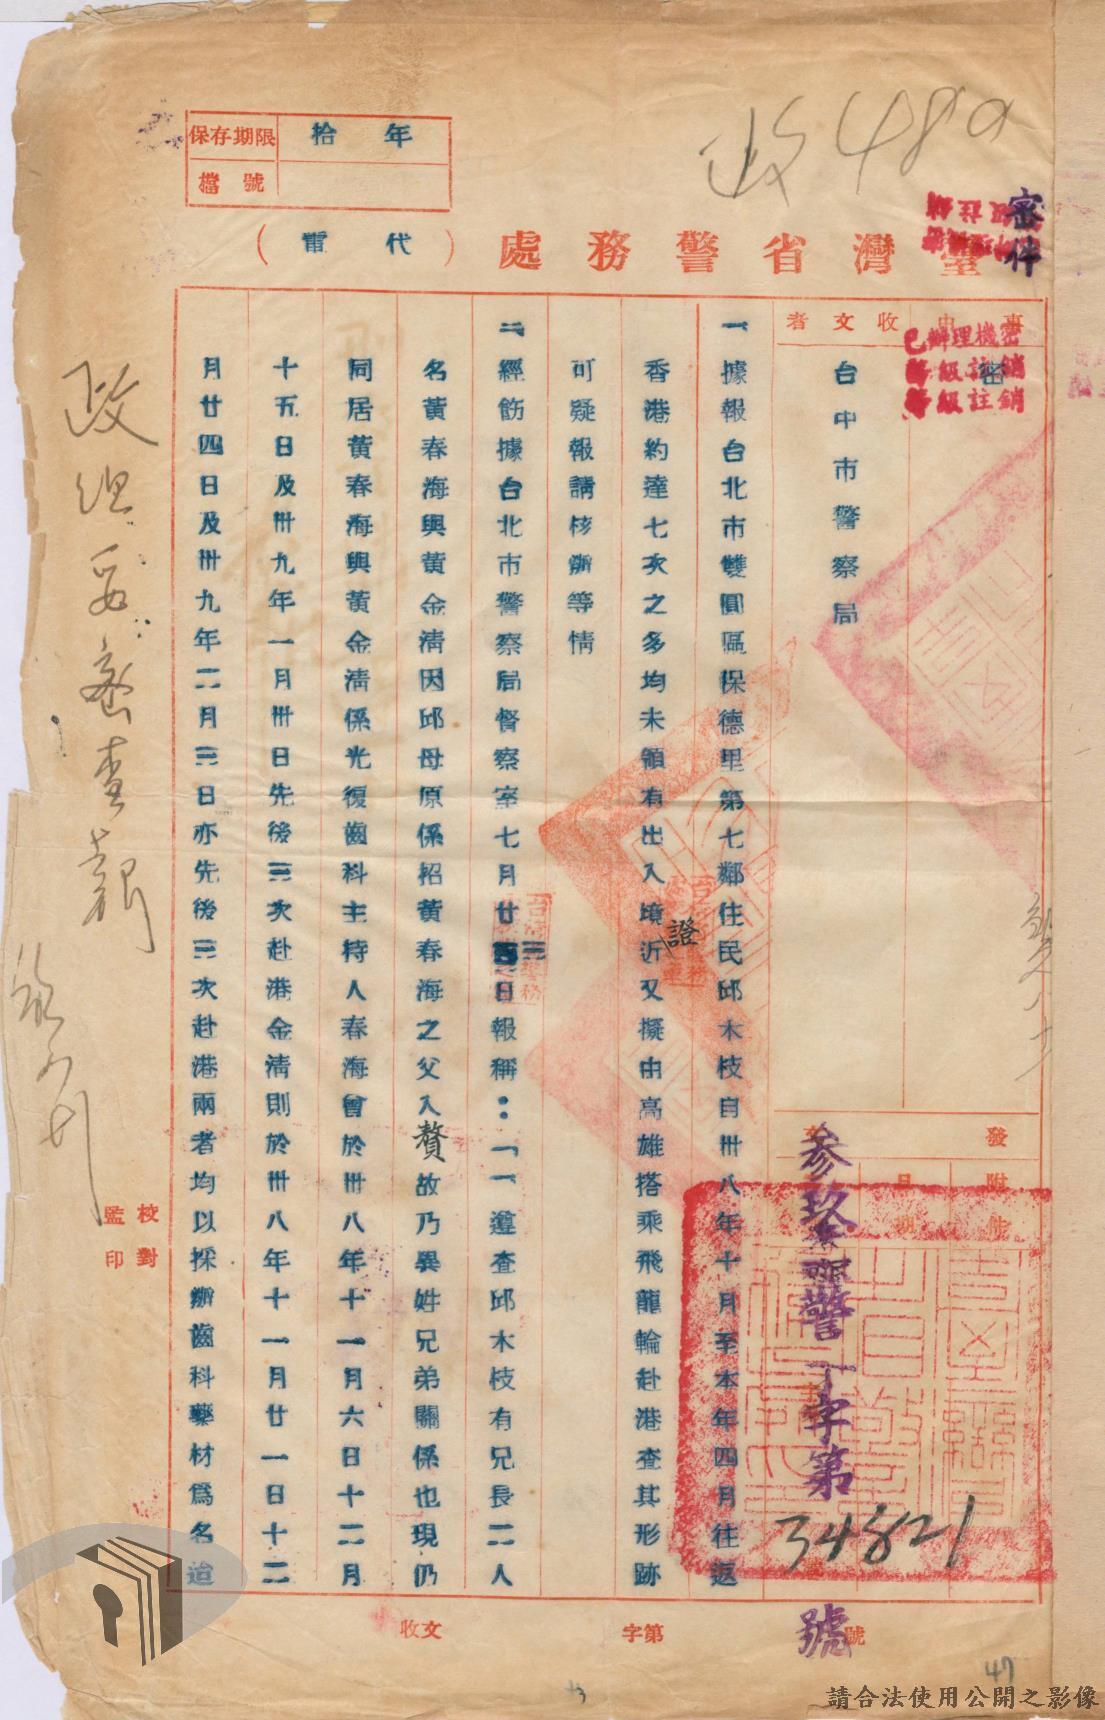 政489
密件
保存期限 拾年
檔號
臺灣省警務處（代電）
事由 密
收文者
台中市警察局
已辦理機密
等級註銷
等級註銷
發
附件
參玖 警 字第34821號
一、據報台北市雙圓區保德里第七鄰住民邱木枝自卅八年十月至本年四月往返
香港約達七次之多均未領有出入境證近又擬由高雄搭乘飛龍輪赴港查其形跡
可疑報請核辦等情
二、經飭據台北市警察局督察室七月廿三日報稱：「一、遵查邱木枝有兄長二人
名黃春海與黃金淸因邱母原係招黃春海之父入贅故乃異姓兄弟關係也現仍
同居黃春海與黃金淸係光復齒科主持人春海曾於卅八年十一月六日十二月
十五日及卅九年一月卅日先後三次赴港金淸則於卅八年十一月廿一日十二
月廿四日及卅九年二月三日亦先後三次赴港兩者均以採辦齒科藥材爲名迨
政組妥密查報
校對
監印
收文
字第
號
47
請合法使用公開之影像